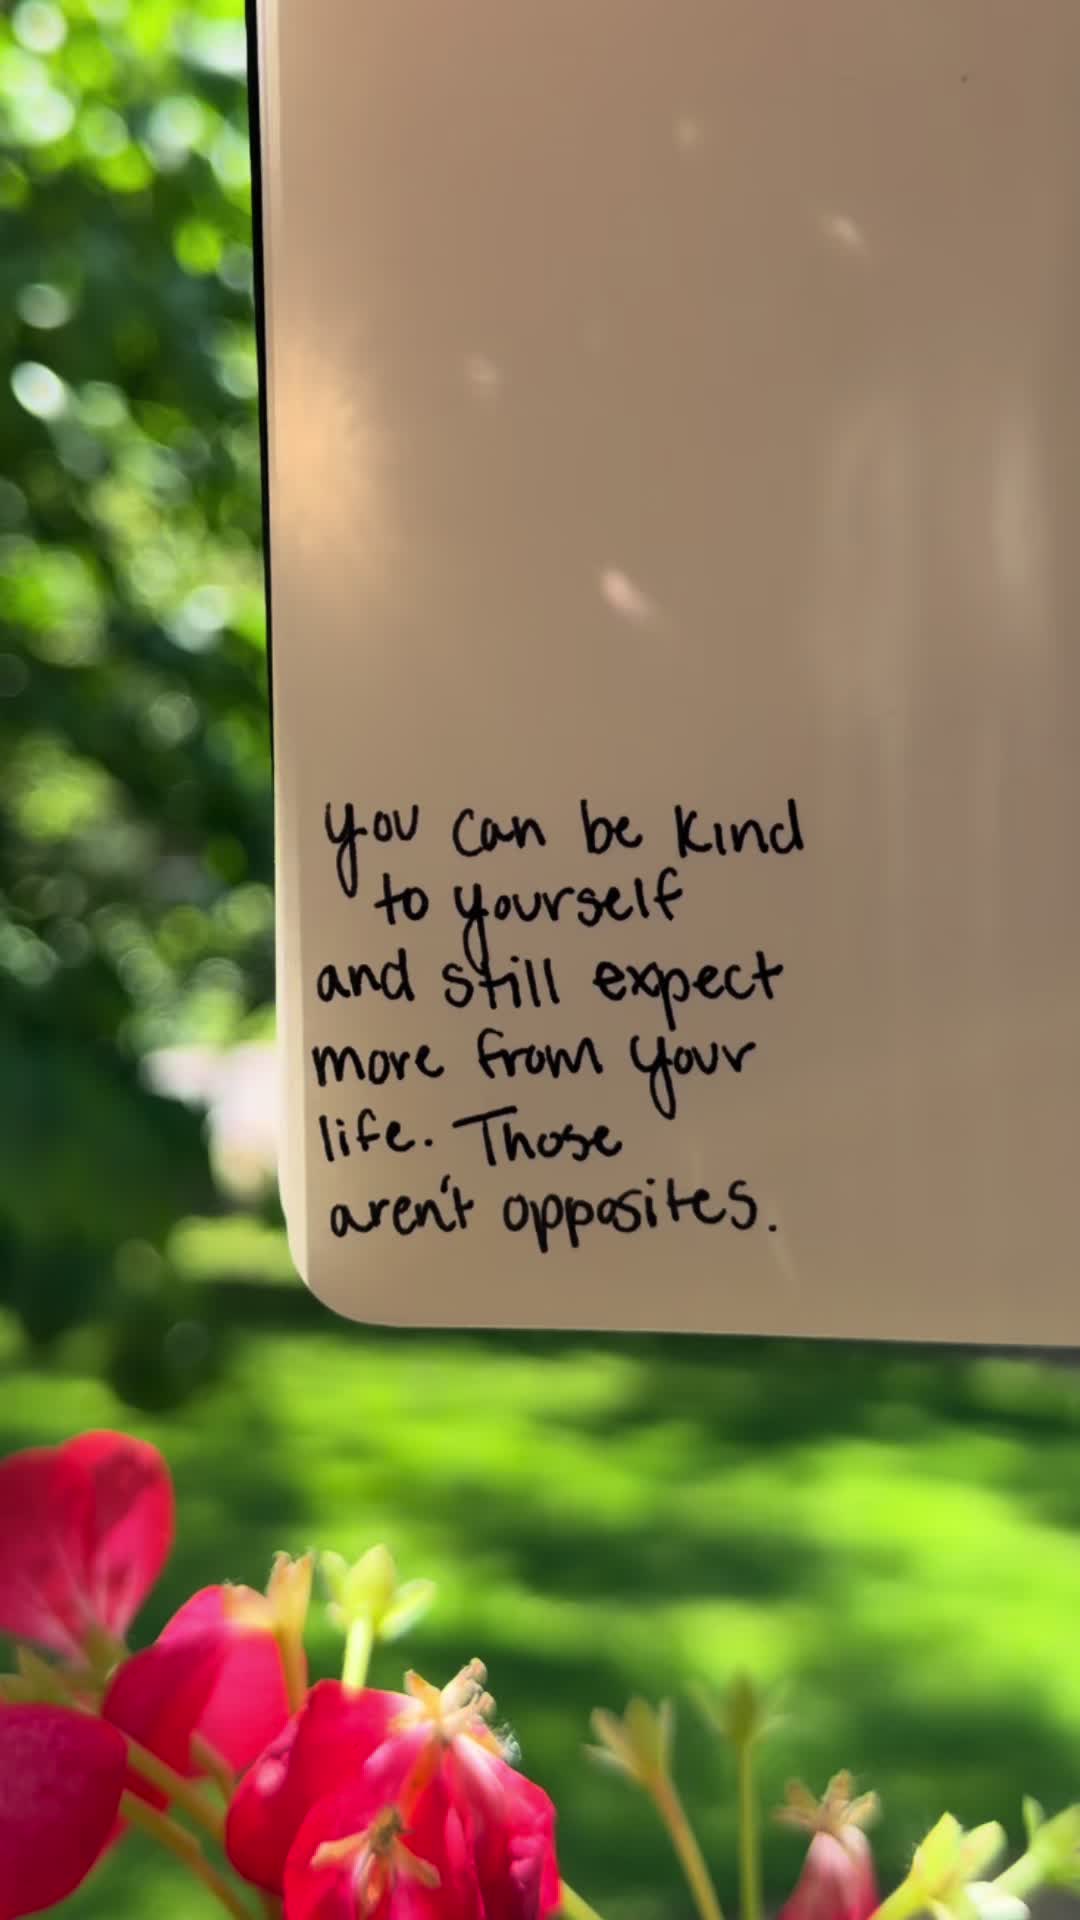 you can be kind
to yourself
and still expect
more from your
life. Those
aren't opposites.